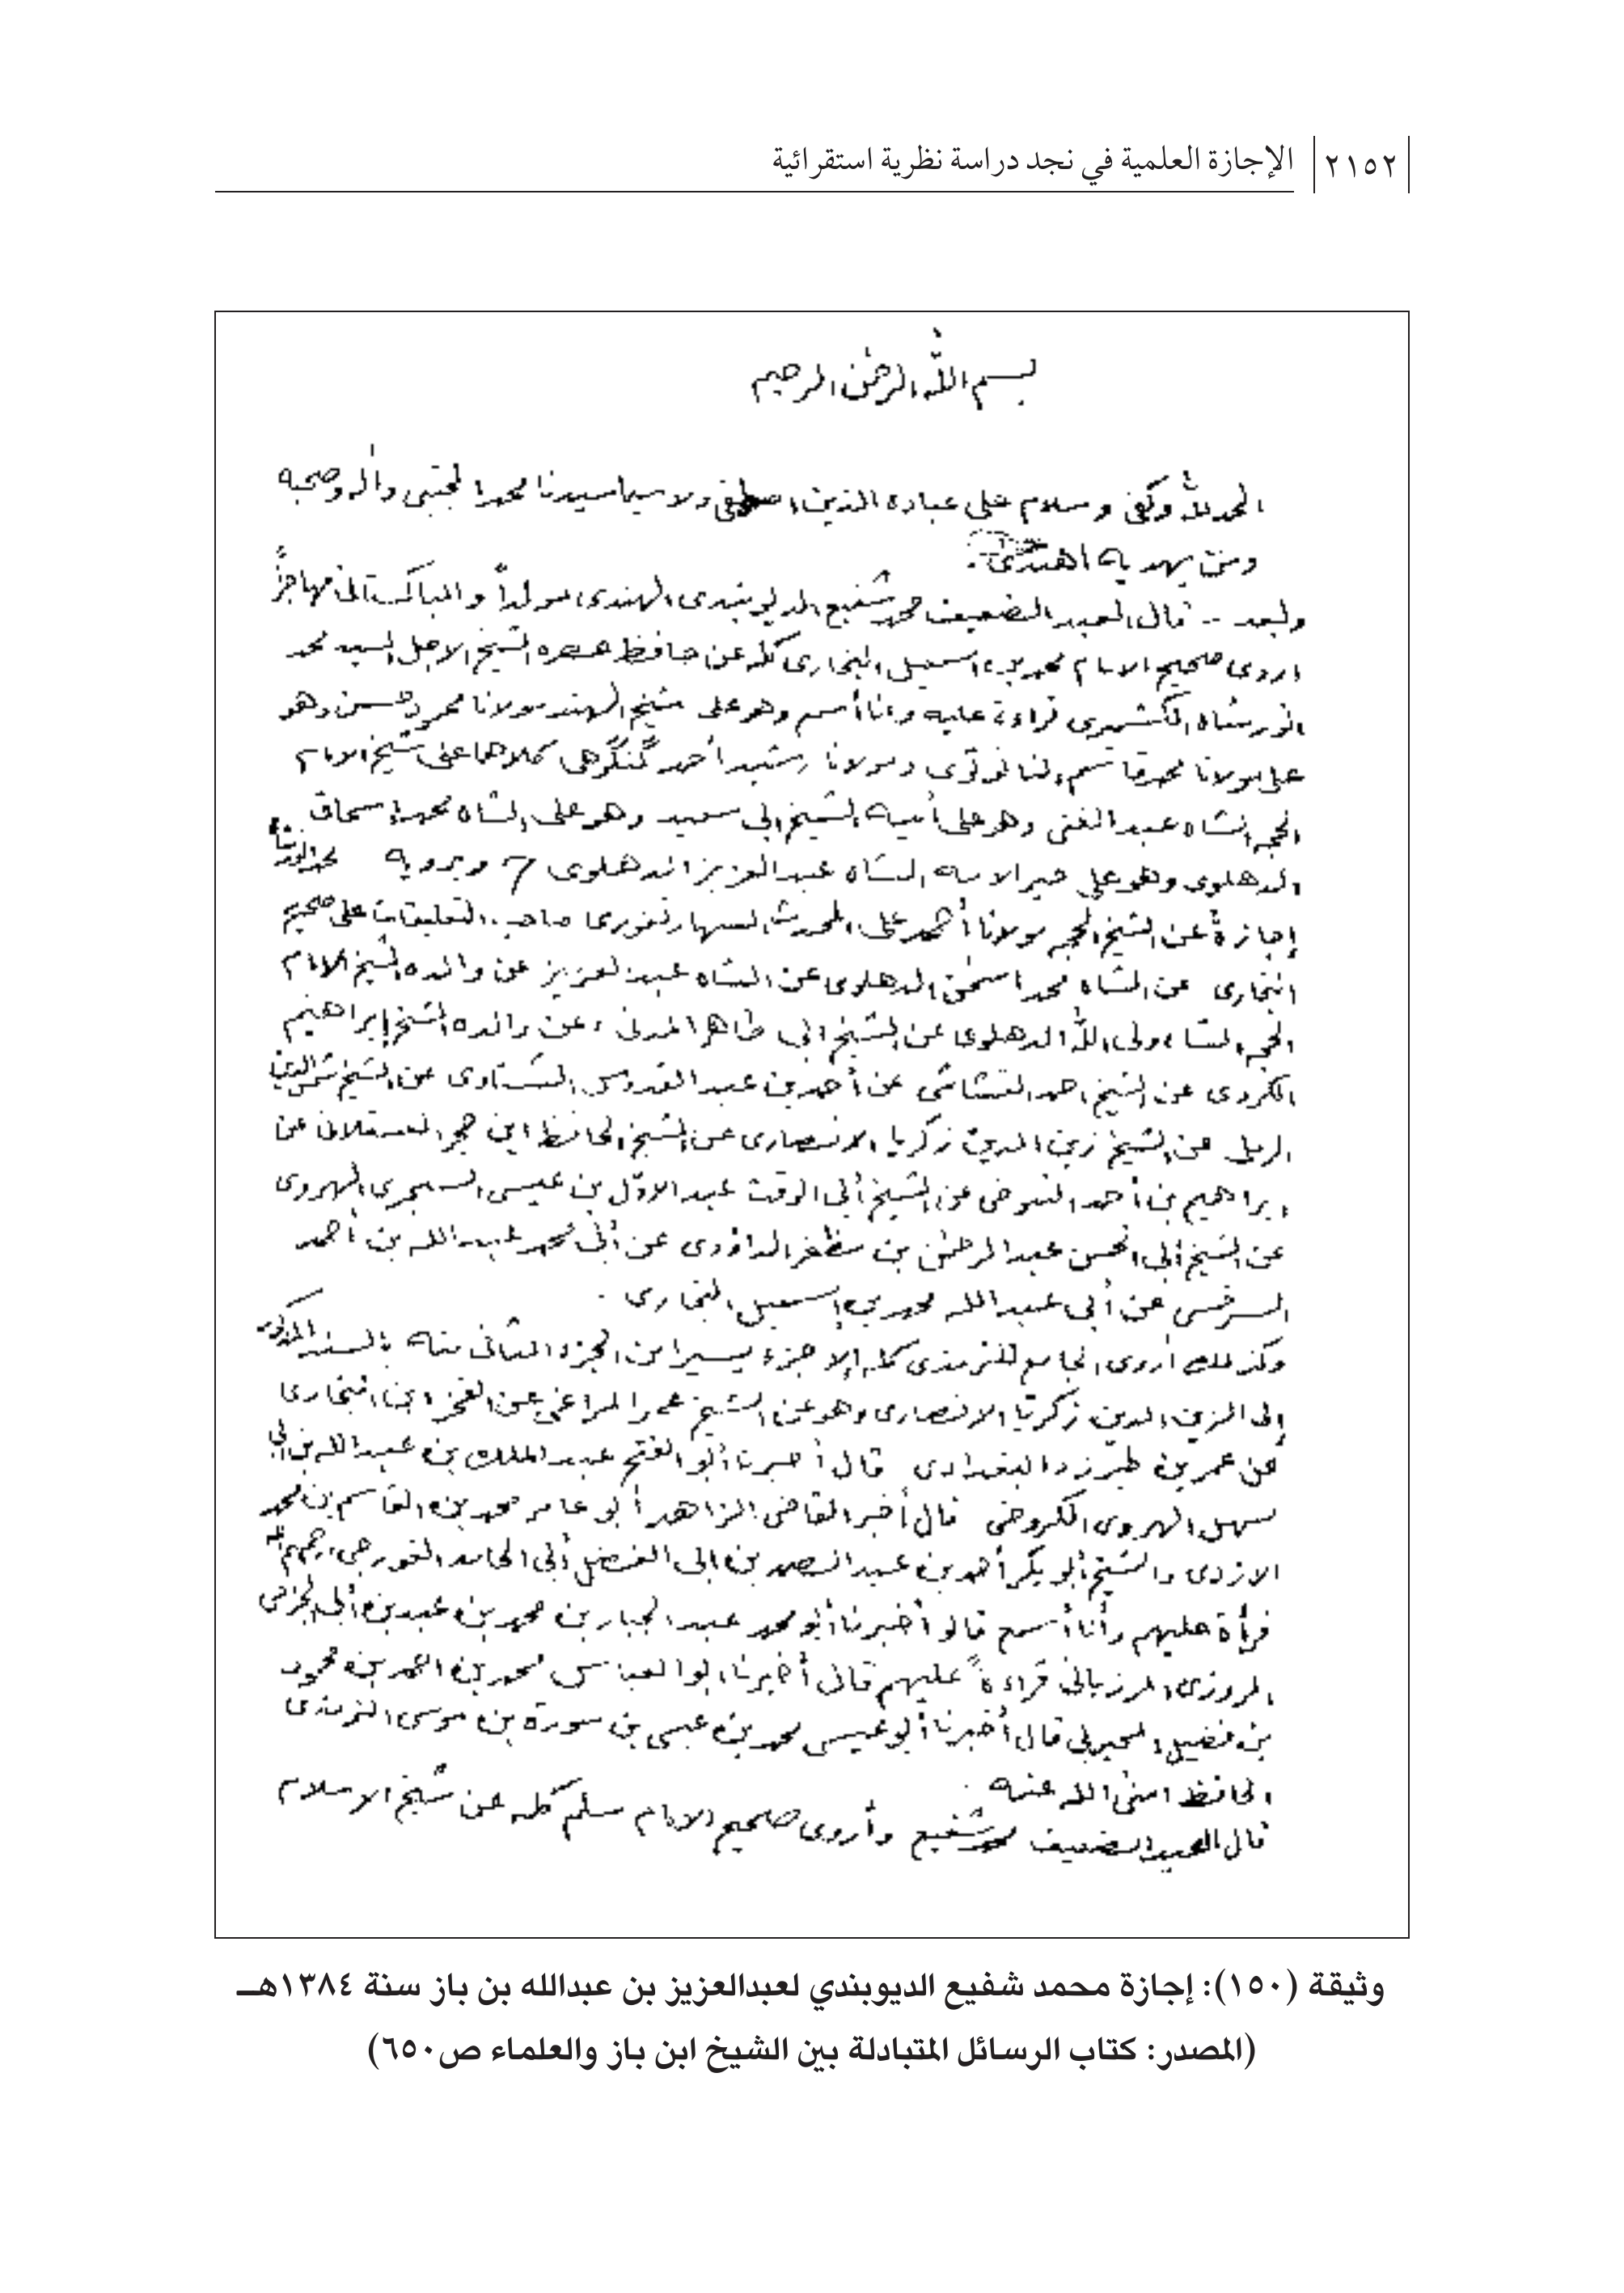 ٢١٥٢
الإجازة العلمية في نجد دراسة نظرية استقرائية
بسم الله الرحمٰن الرحيم
الحمد لله وكفى وسلام على عباده الذين اصطفى ولا سيما سيدنا محمد المجتبى وآله وصحبه
ومن بهديه اهتدى.
وبعد -- قال العبد الضعيف محمد شفيع الديوبندى الهندى مولداً والباكستانى مهاجرًا
اروى صحيح الامام محمد بن اسمعيل البخارى كله عن حافظ عصره الشيخ الاجل السيد محمد
انور شاه الكشميرى قراءة عليه وانا أسمع وهو على شيخ الهند مولانا محمود حسن وهو
على مولانا محمد قاسم النانوتوى ومولانا رشيد أحمد گنگوهى كلاهما على شيخ الامام
الحجة الشاه عبد الغنى وهو على أبيه الشيخ ابى سعيد وهو على الشاه محمد إسحاق
الدهلوى وهو على الشاه عبد العزيز الدهلوى ح ويرويه محمد انور شاه
إجازة عن الشيخ الحجة مولانا أحمد على المحدث السهارنفورى صاحب التعليقات على صحيح
البخارى عن الشاه محمد اسحٰق الدهلوى عن الشاه عبد العزيز عن والده الشيخ الامام
الحجة الشاه ولى الله الدهلوى عن الشيخ ابى طاهر المدنى عن والده الشيخ إبراهيم
الكردى عن الشيخ احمد القشاشى عن أحمد بن عبد القدوس الشناوى عن الشيخ شمس الدين
الرملى عن الشيخ زين الدين زكريا الانصارى عن الشيخ الحافظ ابن حجر العسقلانى عن
ابراهيم بن أحمد التنوخى عن الشيخ أبى الوقت عبد الاوّل بن عيسى السجزى الهروى
عن الشيخ أبى الحسن عبد الرحمٰن بن مظفر الداؤدى عن أبى محمد عبد الله بن أحمد
السرخسى عن أبى عبد الله محمد بن إسمعيل البخارى .
وكذلك أروى الجامع للترمذى كله إلا جزء يسيرا من الجزء الثانى منه بالسند المذكور
إلى الزين الدين زكريّا الانصارى وهو عن الشيخ عمر المراغى عن الفخر ابن البخارى
عن عمر بن طبرزد البغدادى قال أخبرنا أبو الفتح عبد الملك بن عبد الله بن أبى
سهل الهروى الكروخى قال أخبرنا القاضى الزاهد أبو عامر محمود بن القاسم بن محمد
الازدى والشيخ أبو بكر أحمد بن عبد الصمد بن ابى الفضل أبى الحامد الغورجى رحمهم الله
قرأة عليهم وأنا أسمع قالو أخبرنا أبو محمد عبد الجبار بن محمد بن عبد بن أبى الجراحى
المروزى المرزبانى قراءةً عليهم قال أخبرنا ابو العباس محمد بن احمد بن محبوب
بن فضيل المحبوبى قال أخبرنا أبو عيسى محمد بن عيسى بن سورة بن موسى الترمذى
الحافظ الله عنه .
قال العبد الضعيف محمد شفيع وأروى صحيح الامام مسلم كله عن شيخ الاسلام
وثيقة (١٥٠): إجازة محمد شفيع الديوبندي لعبدالعزيز بن عبدالله بن باز سنة ١٣٨٤هـ
(المصدر: كتاب الرسائل المتبادلة بين الشيخ ابن باز والعلماء ص٦٥٠)